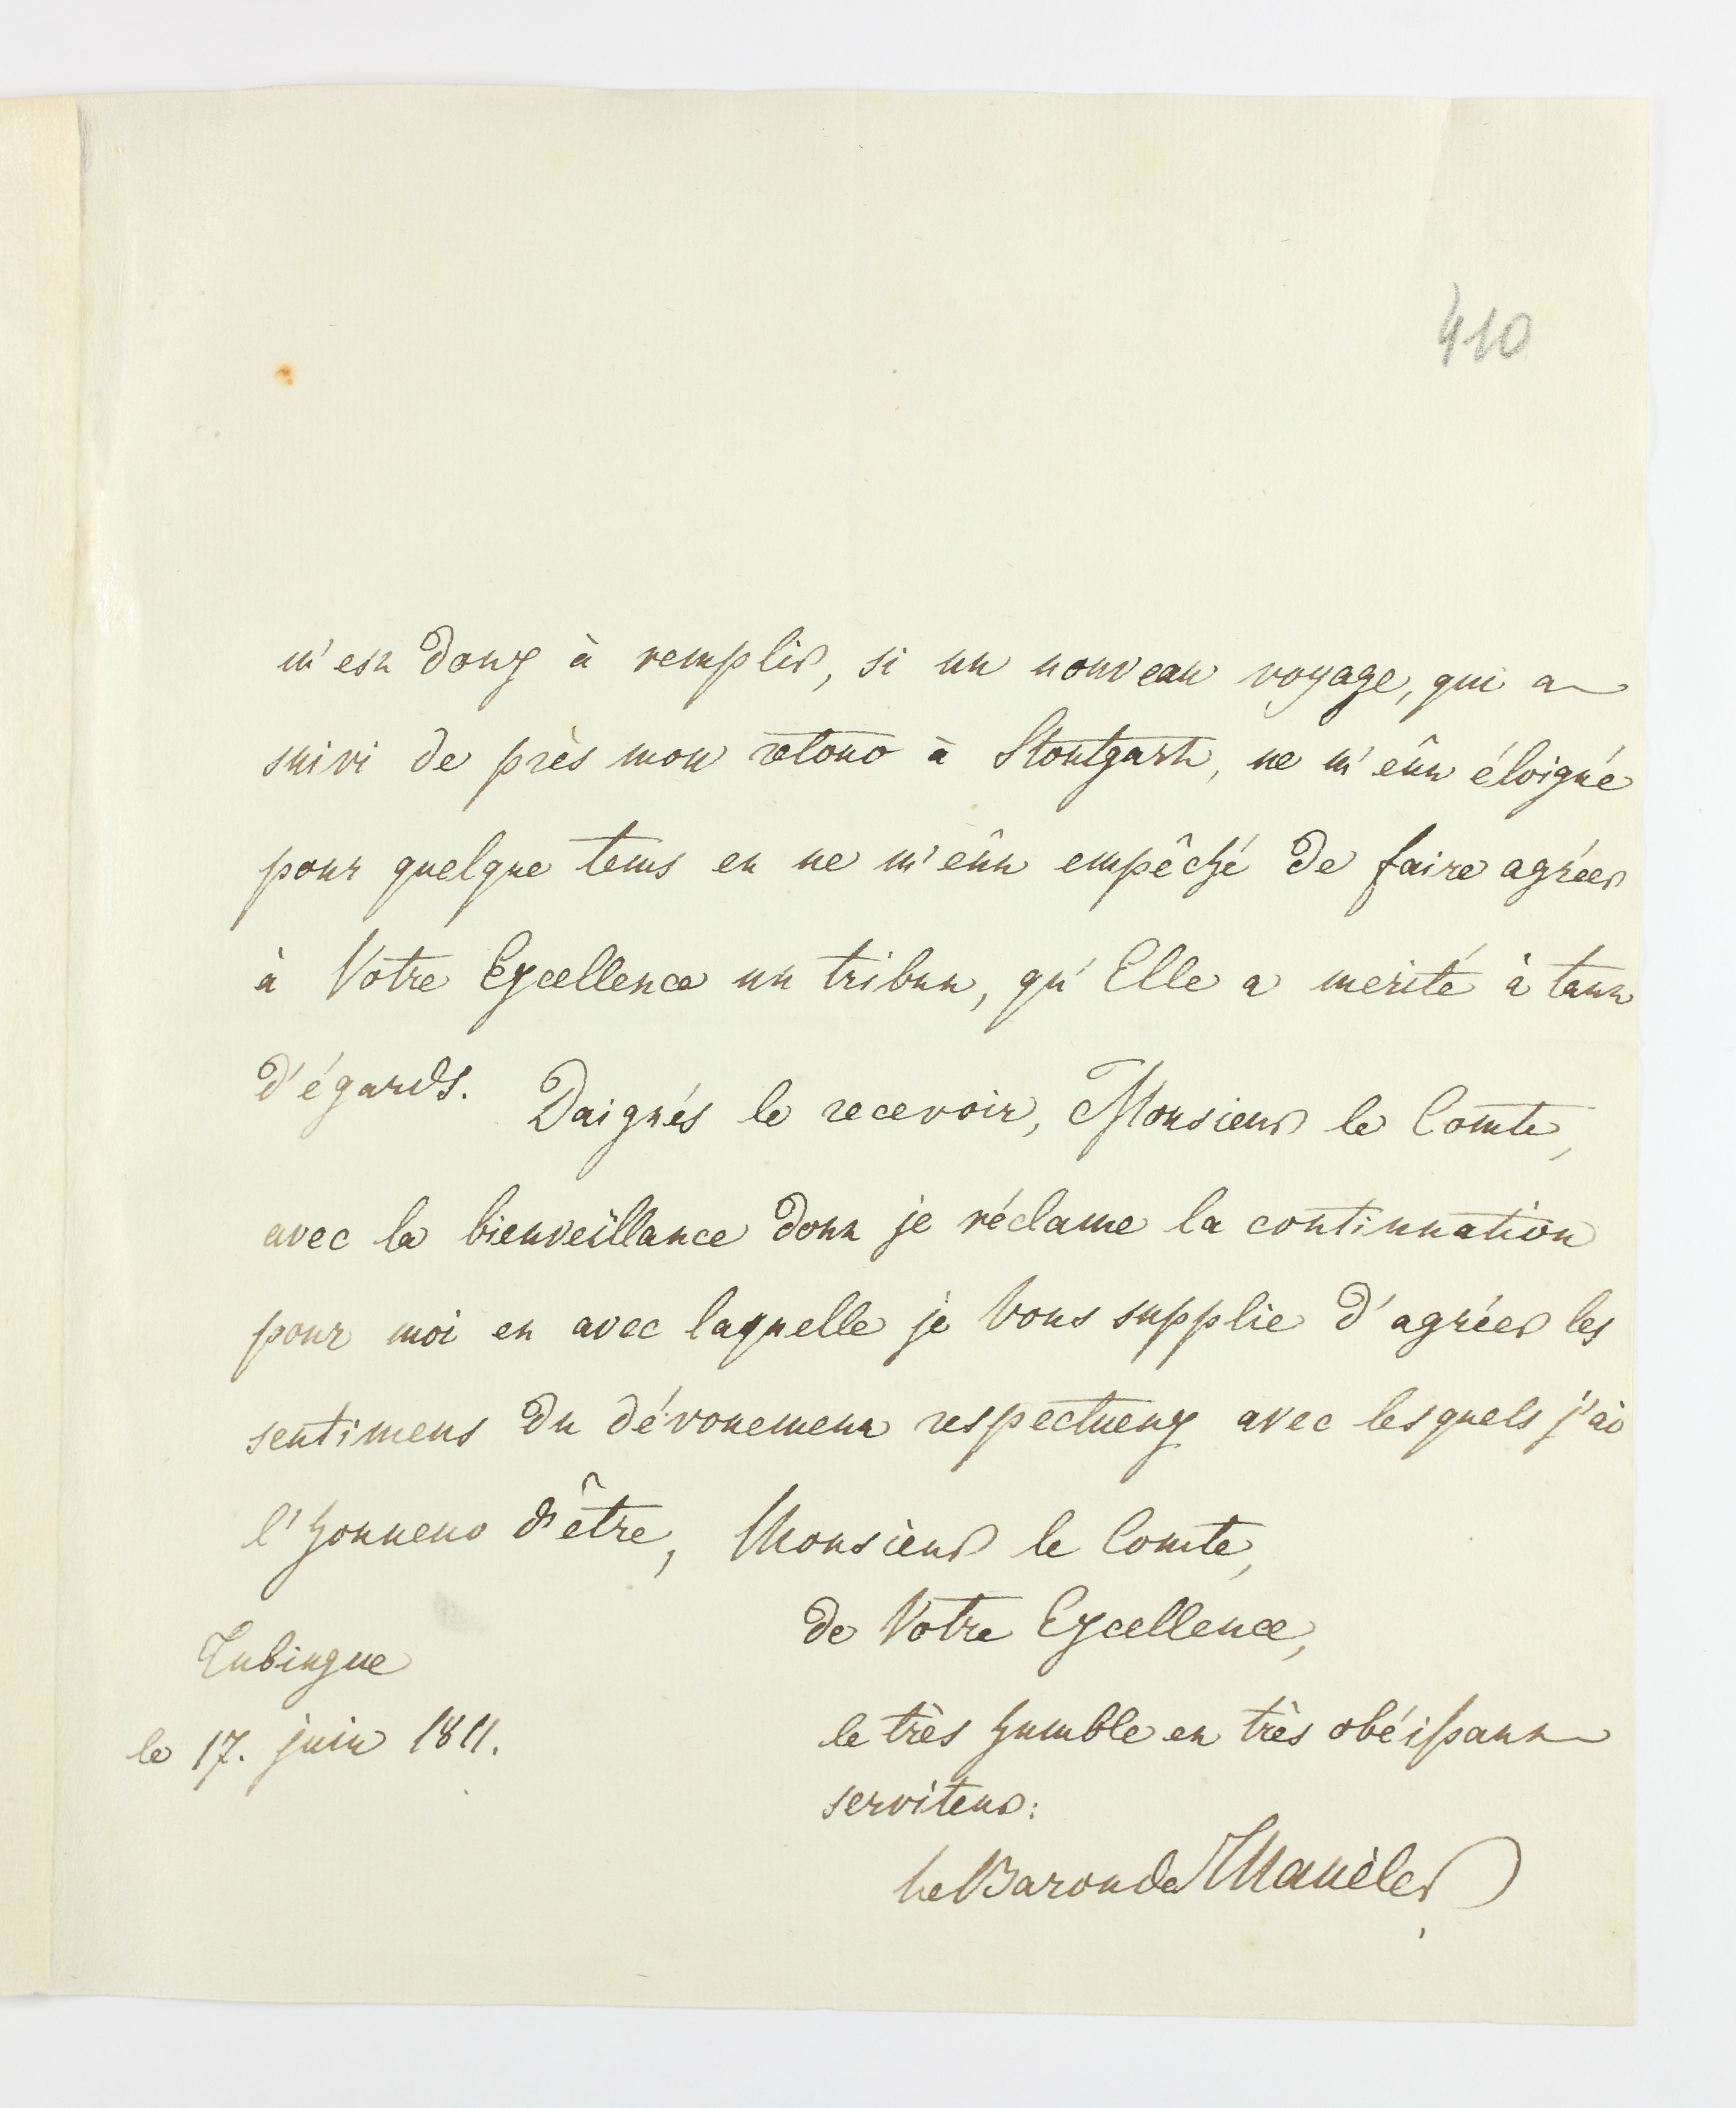 410
m'est doux à remplir, si un nouveau voyage, qui a
suivi de près mon retour à Stoutgart, ne m'eût éloigné
pour quelque tems et ne m'eût empêché de faire agréer
à Votre Excellence un tribut, qu'Elle a merité à tant
d'égards. Daignés le recevoir, Monsieur le Comte,
avec la bienveillance dont je réclame la continuation
pour moi et avec laquelle je Vous supplie d'agréer les
sentimens du dévouement respectueux avec lesquels j'ai
l'honneur d'être, Monsieur le Comte,
de Votre Excellence,
Tubingue
le 17. juin 1811.
le très humble et très obéissant
serviteur:
le Baron de